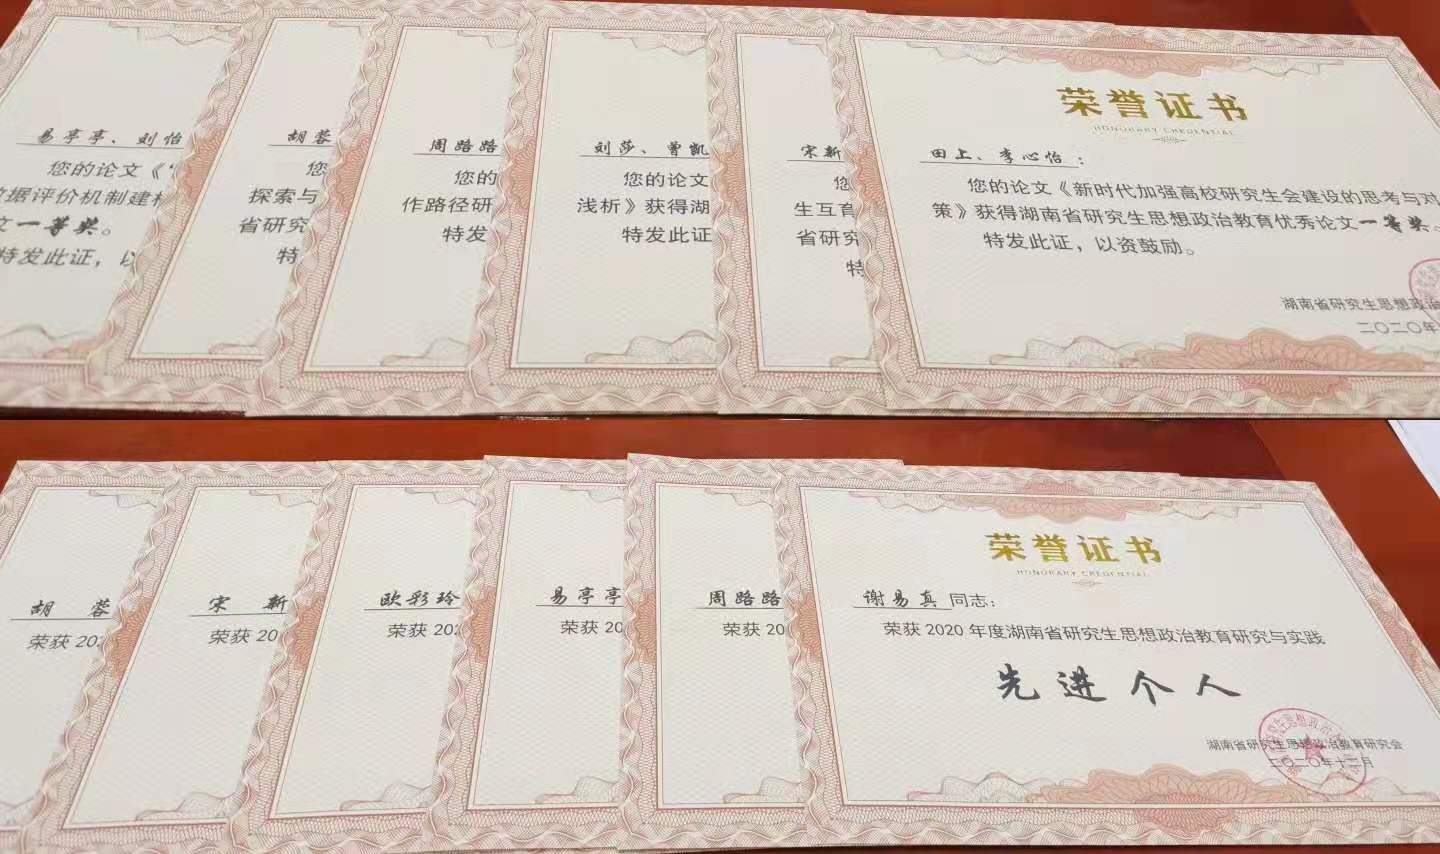 易亭亭、刘怡
您的论文《“
数据评价机制建构
文一等奖。
特发此证，以
胡蓉
您
探索与
省研究
特
周路路
您的
作路径研
特发
刘莎、曾凯
您的论文
浅析》获得湖
特发此证
宋新
您
生互育
省研究
特
荣誉证书
HONORARY CREDENTIAL
田上、李心怡：
您的论文《新时代加强高校研究生会建设的思考与对
策》获得湖南省研究生思想政治教育优秀论文一等奖。
特发此证，以资鼓励。
湖南省研究生思想政治
二〇二〇年
胡 蓉
荣获 202
宋 新
荣获 20
欧彩玲
荣获 202
易亭亭
荣获 20
周路路
荣获 20
荣誉证书
HONORARY CREDENTIAL
谢易真同志：
荣获 2020 年度湖南省研究生思想政治教育研究与实践
先进个人
湖南省研究生思想政治教育研究会
二〇二〇年十二月